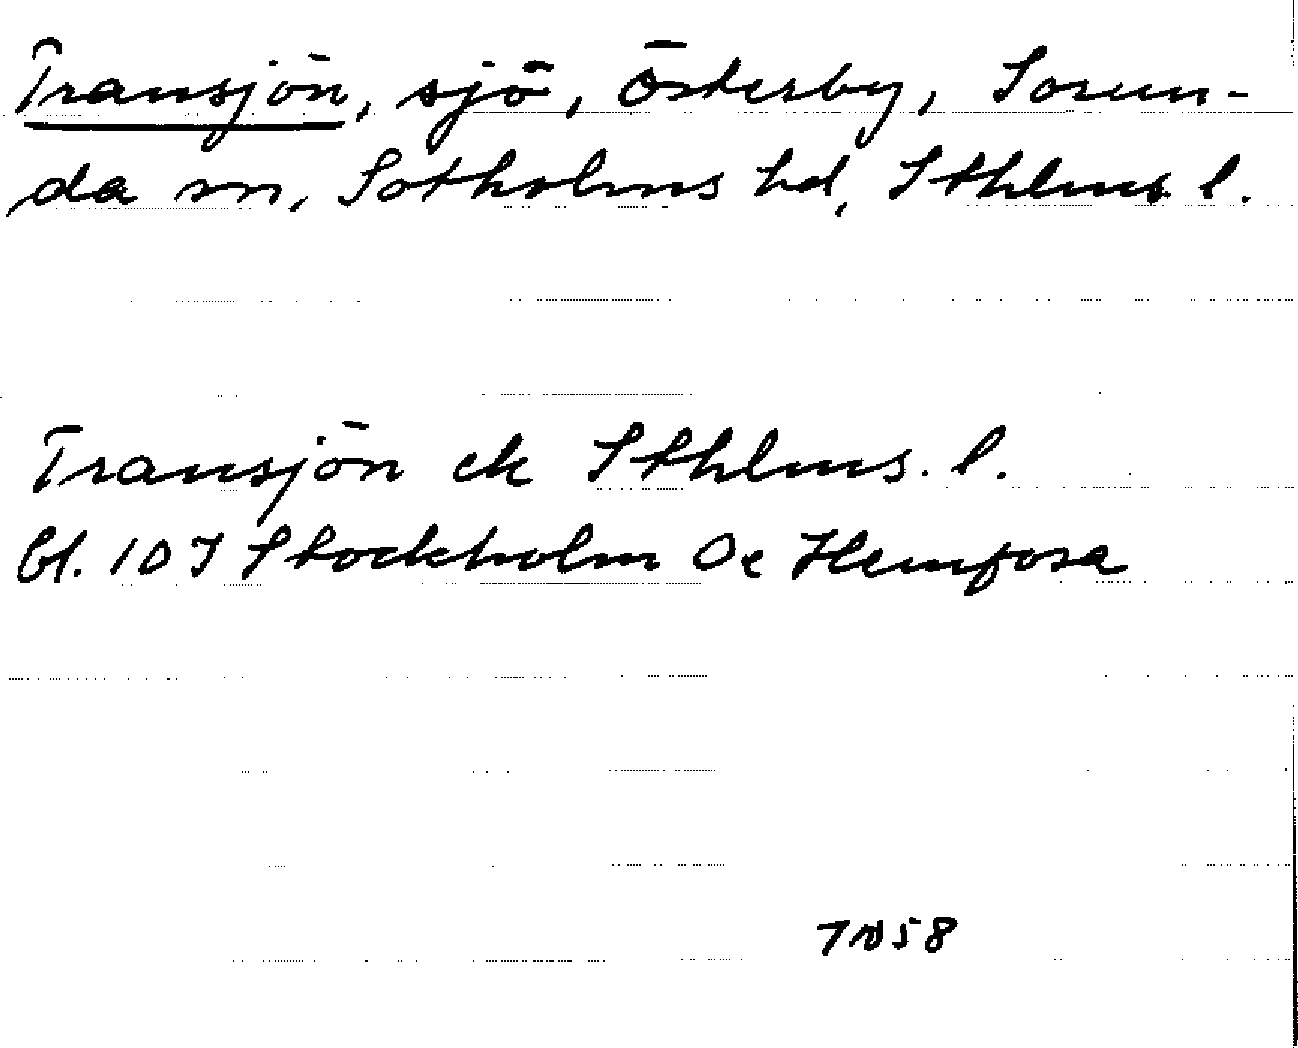 Transjön, sjö, Österby, Sorun-
da sn, Sotholms hd, Sthlms l.
Transjön ek Sthlms. l.
bl. 10I Stockholm Oe Hemfosa
TN58